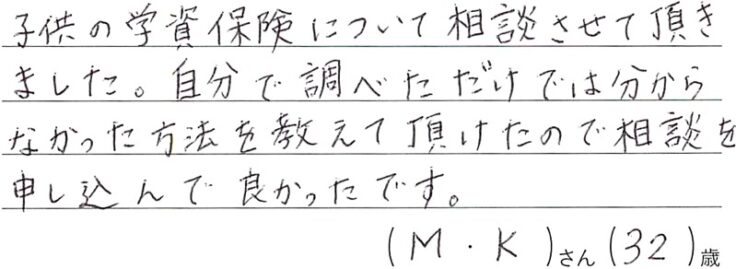 子供の学資保険について相談させて頂き
ました。自分で調べただけでは分から
なかった方法を教えて頂けたので相談を
申し込んで良かったです。
(M・K)さん(32)歳